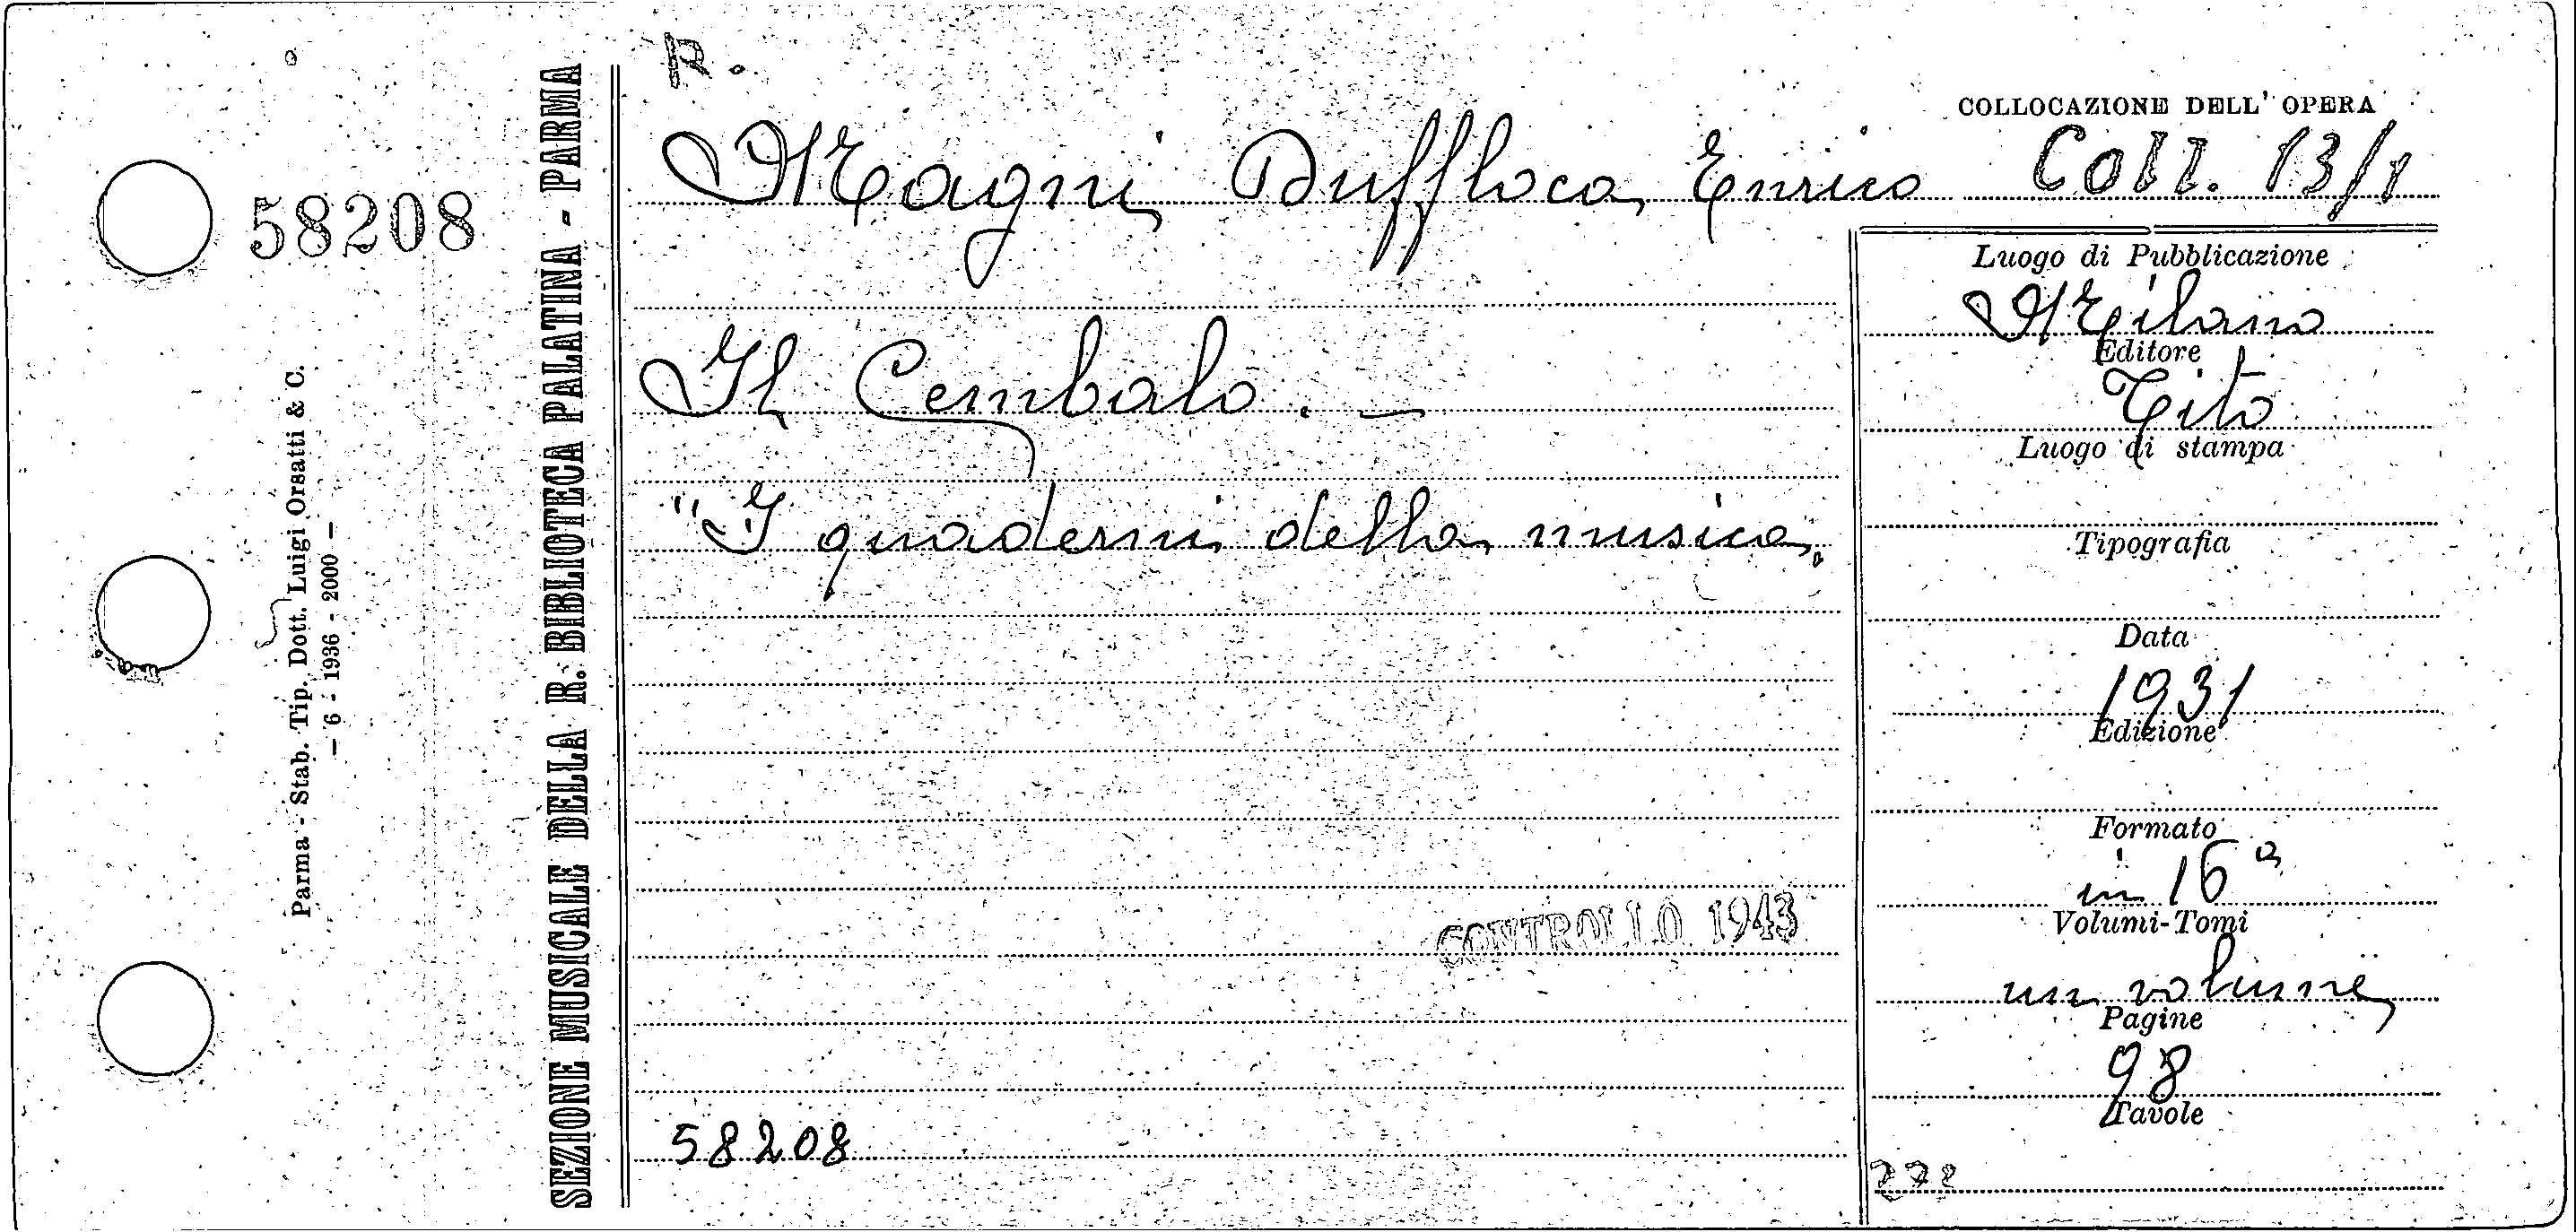 R.
58208
Parma - Stab. Tip. Dott. Luigi Orsatti & C.
— 6 - 1936 - 2000 —
SEZIONE MUSICALE DELLA R. BIBLIOTECA PALATINA - PARMA
COLLOCAZIONE DELL' OPERA
Magni Duffloca, Enrico
Coll. 13/1
Il Cembalo. —
"I quaderni della musica„
CONTROLLO 1943
58208
Luogo di Pubblicazione
Milano
Editore
Tito
Luogo di stampa
Tipografia
Data
1931
Edizione
Formato
in 16°
Volumi-Tomi
un volume
Pagine
98
Tavole